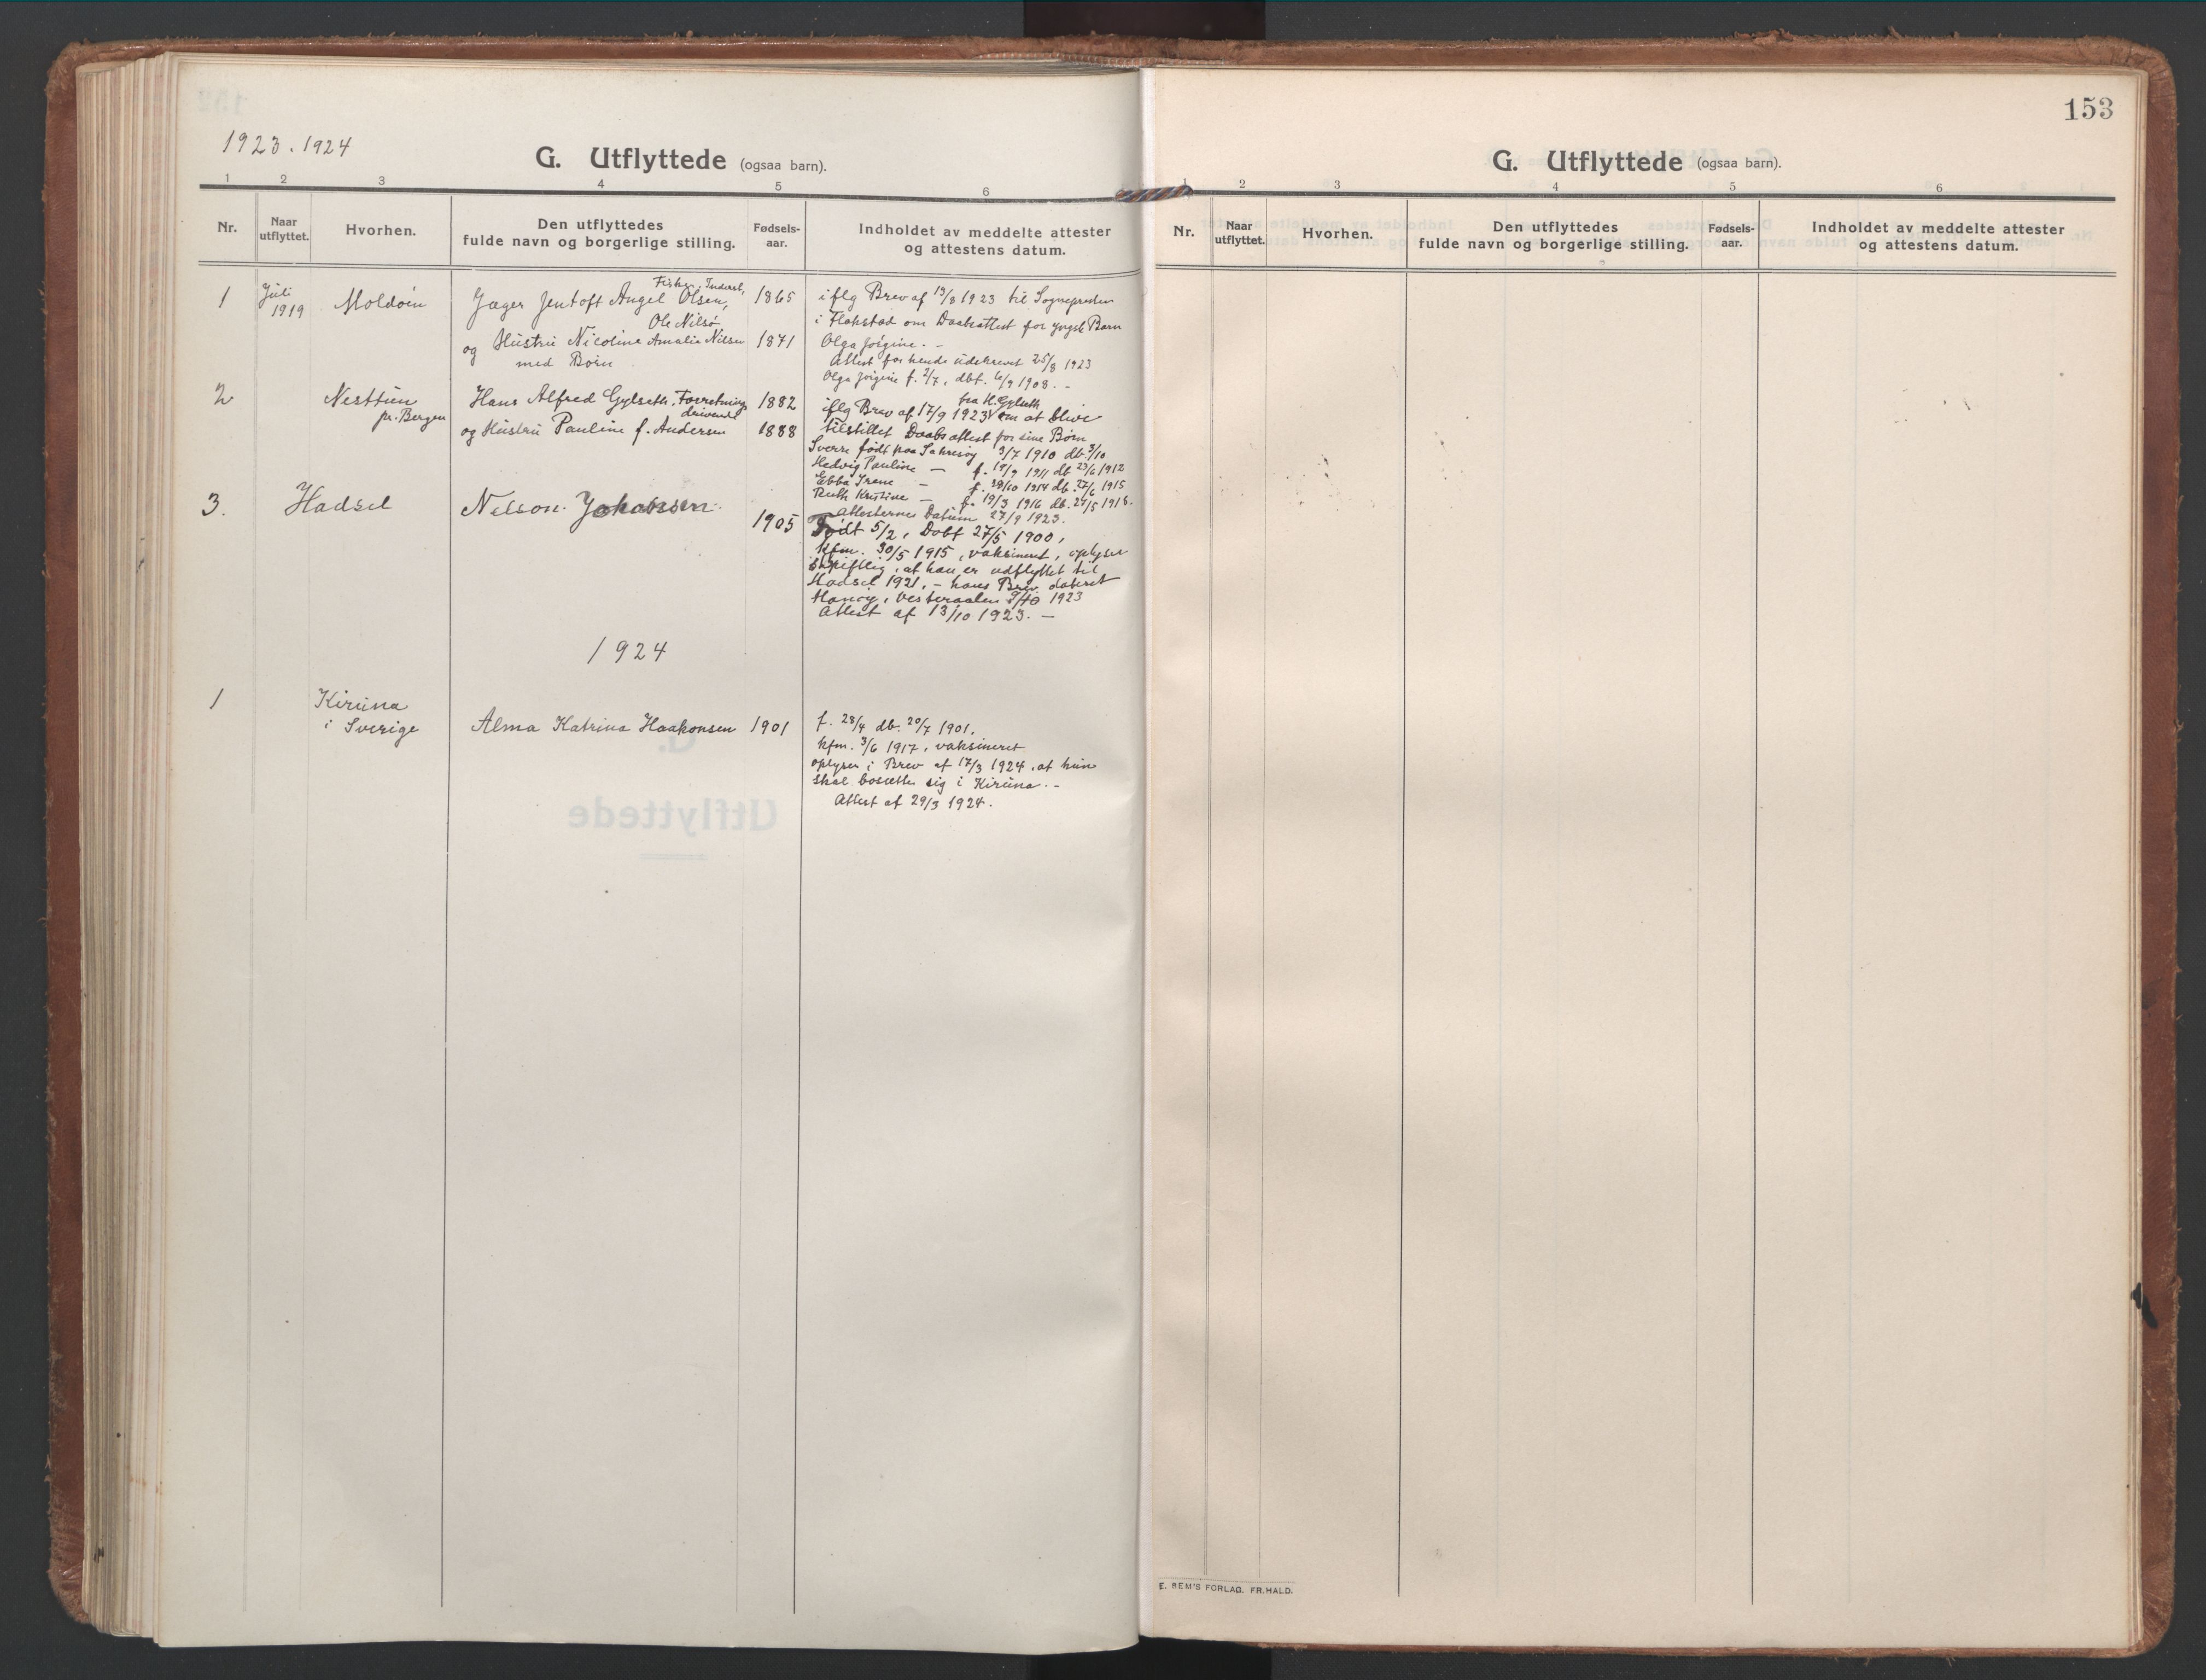 1923 . 1924
G. Utflyttede (ogsaa barn).
1 2 3 4 5 6
Nr. Naar utflyttet. Hvorhen. Den utflyttedes fulde navn og borgerlige stilling. Fødsels-aar. Indholdet av meddelte attester og attestens datum.
1 Juli 1919 Moldøen
Fisker, Inderst,
Jæger Jentoft Angel Olsen, 1865
Ole Nilsø
og Hustru Nicoline Amalie Nilsen 1871
med Børn
iflg Brev af 13/8 1923 til Sognepresten
i Flakstad om Daabsattest for yngste Barn
Olga Jørgine. -
Attest for hende udskrevet 25/8 1923
Olga Jørgine f. 2/7, dbt. 6/9 1908. -
2 Nesttun
pr. Bergen
Hans Alfred Gylseth, Forretnings 1882
drivende
og Hustru Pauline f. Andersen 1888
fra H. Gylseth
iflg Brev af 17/9 1923 om at blive
tilstillet Daabsattest for sine Børn
Sverre født paa Sakrisøy 3/7 1910 db.
Hedvig Pauline — f. 1911 db 23/6 1912
Ebba Irene — f. 1914 db. 27/6 1915
Ruth Kristine — f. 19/3 1916 db. 1918.
Attesternes Datum 27/9 1923.
3. Hadsel Nelson Johansen 1905
Født 5/2, Døbt 27/5 1900,
kfm. 30/5 1915, vaksineret, oplyser
skriftlig, at han er udflyttet til
Hadsel 1921. – hans Brev dateret
Vesteraalen 1923
Attest af 13/10 1923. —
1924
1 Kiruna
i Sverige Alma Katrina Haakonsen 1901
f. 28/4 db. 20/7 1901.
kfm. 3/6 1917, vaksineret
oplyser i Brev af 17/3 1924, at hun
skal bosætte sig i Kiruna. -
Attest af 29/3 1924.
153
G. Utflyttede (ogsaa barn).
1 2 3 4 5 6
Nr. Naar utflyttet. Hvorhen. Den utflyttedes fulde navn og borgerlige stilling. Fødsels-aar. Indholdet av meddelte attester og attestens datum.
E. SEM'S FORLAG. FR.HALD.